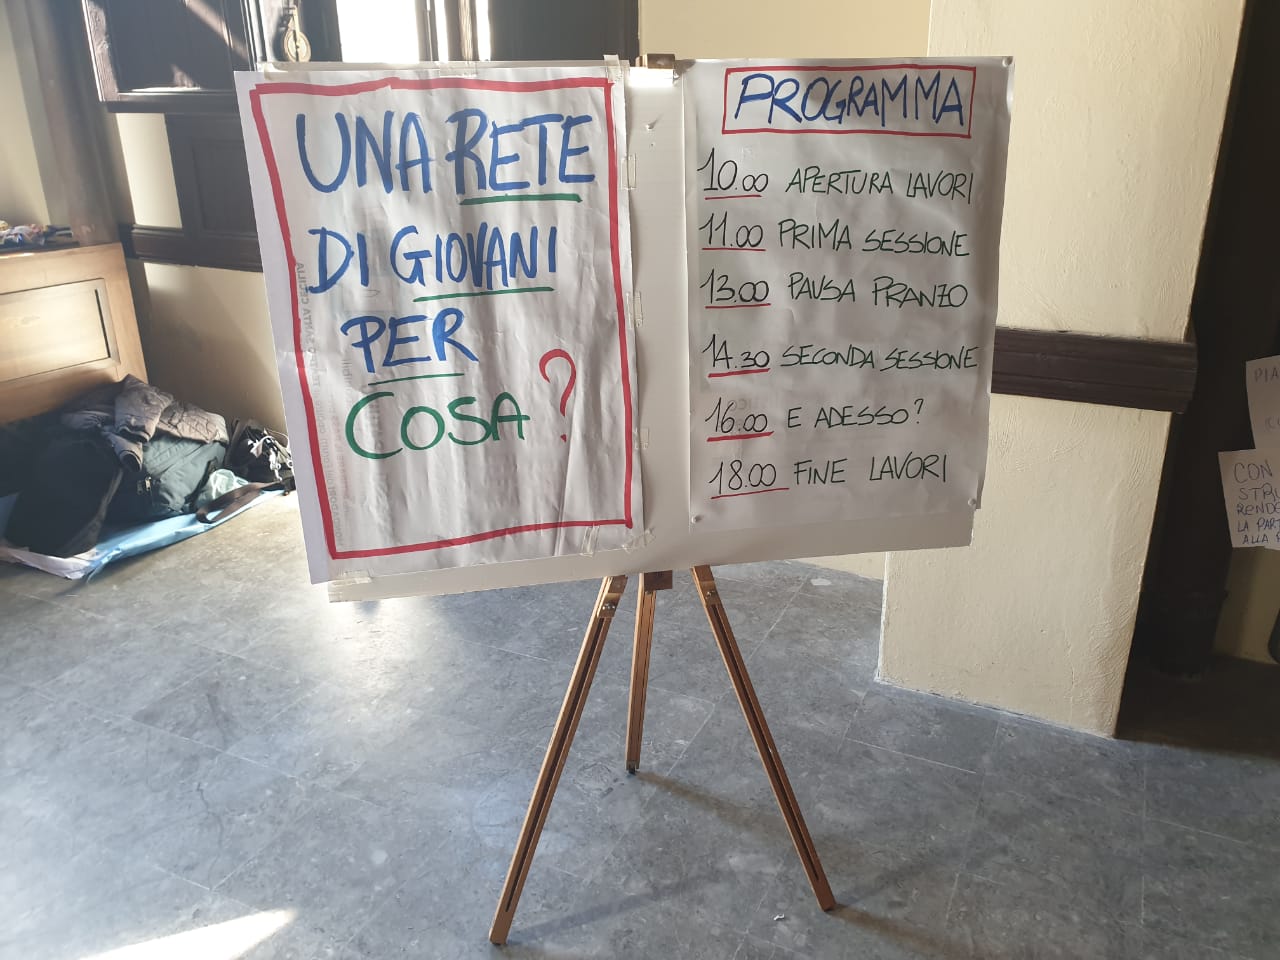 UNA RETE
DI GIOVANI
PER
COSA?
PROGRAMMA
10.00 APERTURA LAVORI
11.00 PRIMA SESSIONE
13.00 PAUSA PRANZO
14.30 SECONDA SESSIONE
16.00 E ADESSO?
18.00 FINE LAVORI
PIA
CON
STRU
RENDE
LA PAR
ALLA